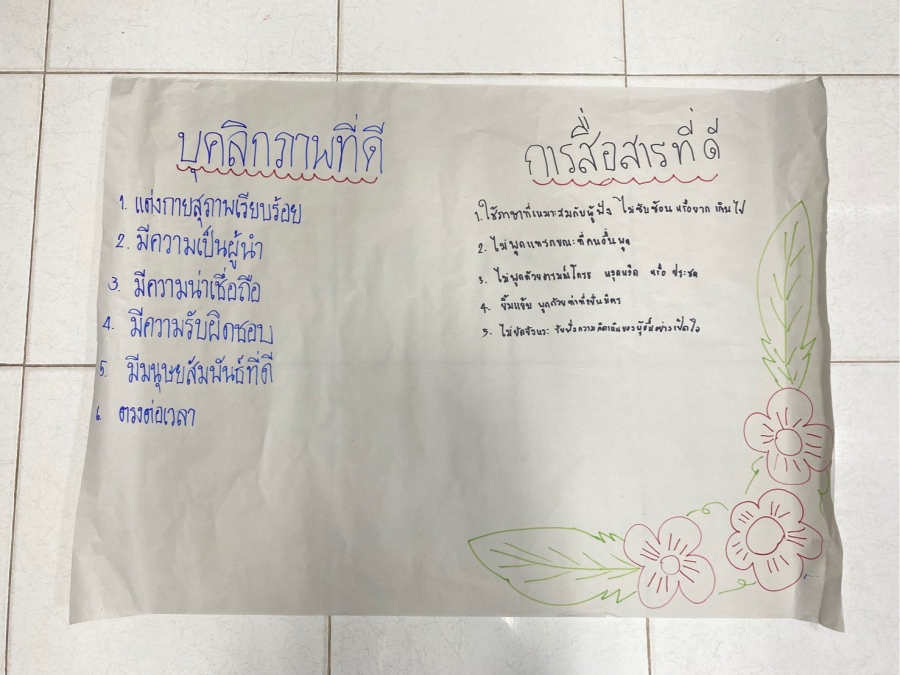 บุคลิกภาพที่ดี
1. แต่งกายสุภาพเรียบร้อย
2. มีความเป็นผู้นำ
3. มีความน่าเชื่อถือ
4. มีความรับผิดชอบ
5. มีมนุษยสัมพันธ์ที่ดี
6. ตรงต่อเวลา
การสื่อสารที่ดี
1. ใช้ภาษาที่เหมาะสมกับผู้ฟัง ไม่ซับซ้อน หรือยาก เกินไป
2. ไม่พูดแทรกขณะที่คนอื่นพูด
3. ไม่พูดด้วยอารมณ์โกรธ หงุดหงิด หรือ ประชด
4. ยิ้มแย้ม พูดด้วยท่าทีเป็นมิตร
5. ไม่ขัดจังหวะ รับฟังความคิดเห็นของผู้อื่นอย่างเปิดใจ